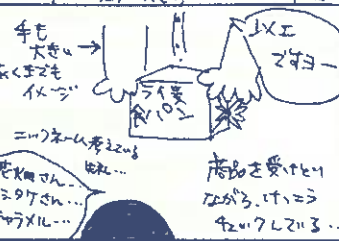 手も
大きい
あくまでも
イメージ
以上
ですヨー
ライ麦
食パン
ニックネーム考えている
花畑さん…
シタケさん…
キャラメル…
商品を受けとり
ながら、けっこう
チェックしている…